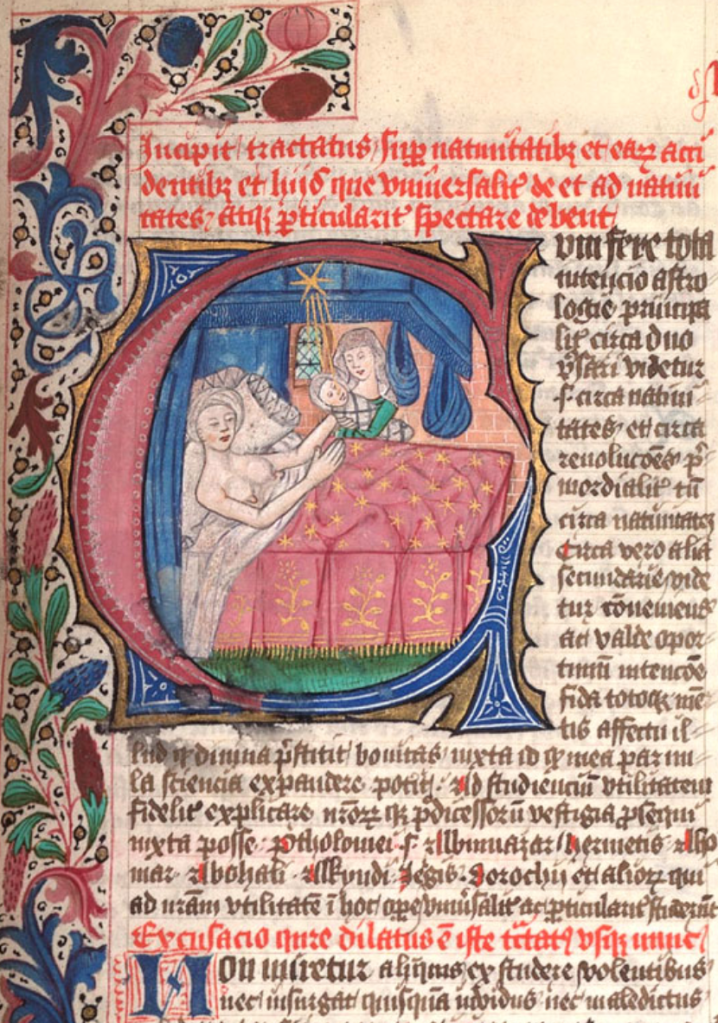 Incipit tractatus sup natiuitatibz et eaꝝ acci
dentibz et hijs que vniuersalit de et ad natiui
tates atqz pticularit spectare debent
Cum fere tota
intencio astro
logie principa
lit circa duo
vsari videtur
s. circa natiui
tates et circa
reuoluc̄oēs p̄
mordialit tn̄
circa natiuitates
Circa vero alia
secundarie vide
tur conueniens
ac valde opor
tunū intencōe
fida totoqz mē
tis affectu il
lud qd diuina p̄stitit bonitas iuxta id qd mea parui
la sciencia expandere potit. Ad studenciū vtilitatem
fidelit explicare nr̄oꝝ qz p̄dicessorū vestigia p̄sequi
iuxta posse. ptholomei. s. Albumazar hermetis Aho
mar. Albohali. Alkyndi Zegis. Dorochij et alioꝝ qui
ad nr̄am vtilitatē ī hoc ope vniūsalit ac pticularit studerūt
Excusacio qure dilatus ē iste tctat vsqz nunc
Non miretur aliquis ex studere volentibus
nec insurgat quisquā inuidus nec maledictus